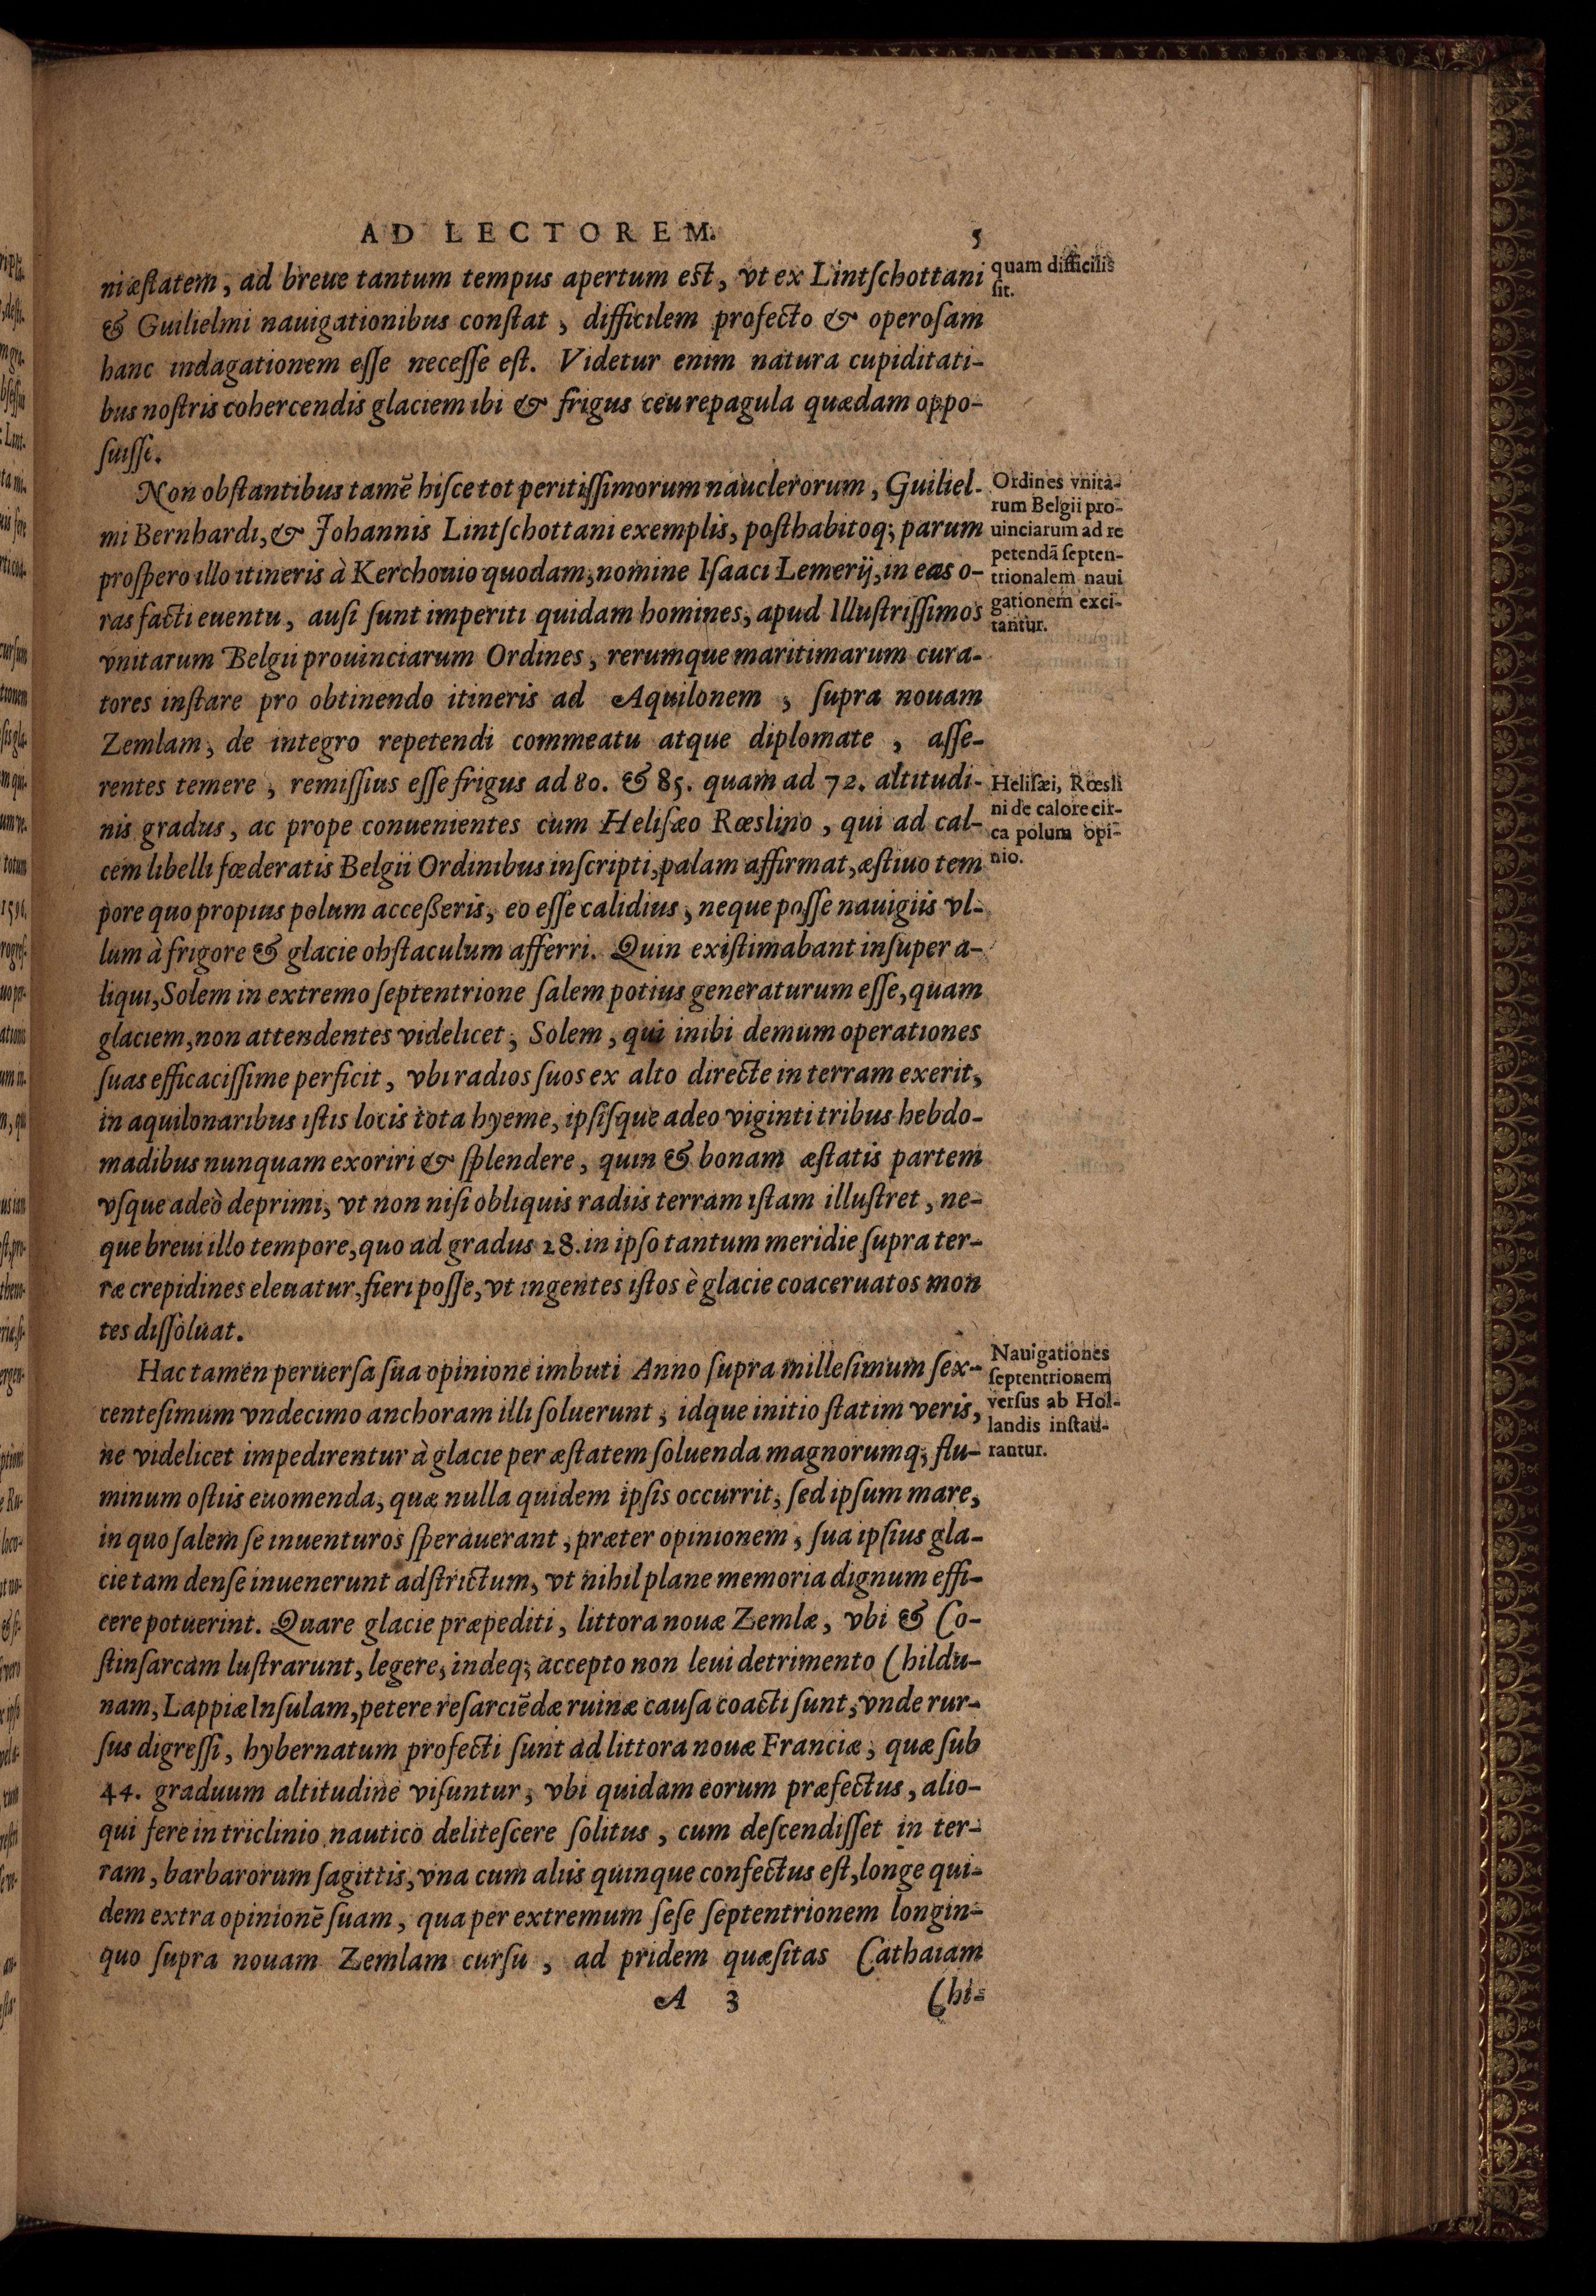 AD LECTOREM. 5
ni æſtatem, ad breue tantum tempus apertum eſt, vt ex Lintſchottani
& Guilielmi nauigationibus conſtat, difficilem profecto & operoſam
hanc indagationem eſſe neceſſe eſt. Videtur enim natura cupiditati-
bus noſtris cohercendis glaciem ibi & frigus ceu repagula quædam oppo-
ſuiſſe.
quam difficilis
ſit.
Non obſtantibus tamē hiſce tot peritiſſimorum nauclerorum, Guiliel-
mi Bernhardi, & Johannis Lintſchottani exemplis, poſthabitoq; parum
proſpero illo itineris à Kerchouio quodam, nomine Iſaaci Lemerij, in eas o-
ras facti euentu, auſi ſunt imperiti quidam homines, apud Illuſtriſſimos
vnitarum Belgii prouinciarum Ordines, rerumque maritimarum cura-
tores inſtare pro obtinendo itineris ad Aquilonem, ſupra nouam
Zemlam, de integro repetendi commeatu atque diplomate, aſſe-
rentes temere, remiſſius eſſe frigus ad 80. & 85. quam ad 72. altitudi-
nis gradus, ac prope conuenientes cum Heliſæo Rœslino, qui ad cal-
cem libelli fœderatis Belgii Ordinibus inſcripti, palam affirmat, æſtiuo tem
pore quo propius polum acceßeris, eo eſſe calidius, neque poſſe nauigiis vl-
lum à frigore & glacie obſtaculum afferri. Quin exiſtimabant inſuper a-
liqui, Solem in extremo ſeptentrione ſalem potius generaturum eſſe, quam
glaciem, non attendentes videlicet, Solem, qui inibi demum operationes
ſuas efficaciſſime perficit, vbi radios ſuos ex alto directe in terram exerit,
in aquilonaribus iſtis locis tota hyeme, ipſiſque adeo viginti tribus hebdo-
madibus nunquam exoriri & ſplendere, quin & bonam æſtatis partem
vſque adeò deprimi, vt non niſi obliquis radiis terram iſtam illuſtret, ne-
que breui illo tempore, quo ad gradus 28. in ipſo tantum meridie ſupra ter-
ræ crepidines eleuatur, fieri poſſe, vt ingentes iſtos è glacie coaceruatos mon
tes diſſoluat.
Ordines vnita-
rum Belgii pro-
uinciarum ad re
petendā ſepten-
trionalem naui
gationem exci-
tantur.
Heliſæi, Rœsli
ni de calore cir-
ca polum opi-
nio.
Hac tamen peruerſa ſua opinione imbuti Anno ſupra milleſimum ſex-
centeſimum vndecimo anchoram illi ſoluerunt, idque initio ſtatim veris,
ne videlicet impedirentur à glacie per æſtatem ſoluenda magnorumq; flu-
minum oſtiis euomenda, quæ nulla quidem ipſis occurrit, ſed ipſum mare,
in quo ſalem ſe inuenturos ſperauerant, præter opinionem, ſua ipſius gla-
cie tam denſe inuenerunt adſtrictum, vt nihil plane memoria dignum effi-
cere potuerint. Quare glacie præpediti, littora nouæ Zemlæ, vbi & Co-
ſtinſarcam luſtrarunt, legere, indeq; accepto non leui detrimento Childu-
nam, Lappiæ Inſulam, petere reſarciēdæ ruinæ cauſa coacti ſunt, vnde rur-
ſus digreſſi, hybernatum profecti ſunt ad littora nouæ Franciæ, quæ ſub
44. graduum altitudine viſuntur, vbi quidam eorum præfectus, alio-
qui fere in triclinio nautico deliteſcere ſolitus, cum deſcendiſſet in ter-
ram, barbarorum ſagittis, vna cum aliis quinque confectus eſt, longe qui-
dem extra opinionē ſuam, qua per extremum ſeſe ſeptentrionem longin-
quo ſupra nouam Zemlam curſu, ad pridem quæſitas Cathaiam
Nauigationes
ſeptentrionem
verſus ab Hol-
landis inſtau-
rantur.
A 3 Chi-